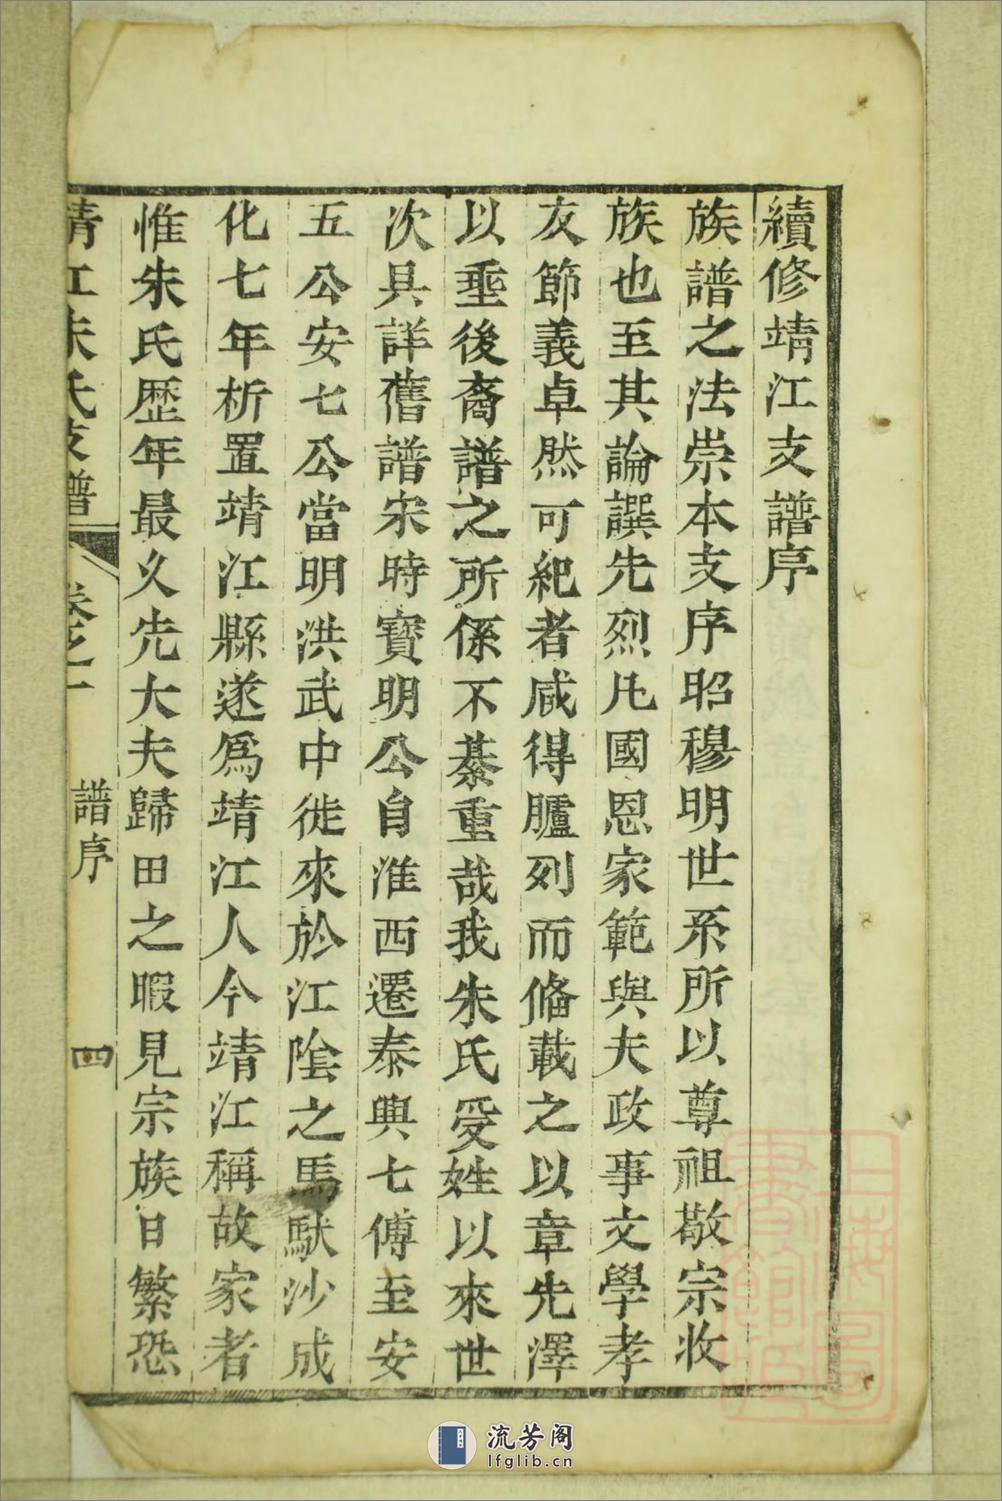 續修靖江支譜序
族譜之法崇本支序昭穆明世系所以尊祖敬宗收
族也至其論譔先烈凡國恩家範與夫政事文學孝
友節義卓然可紀者咸得臚列而偹載之以章先澤
以垂後裔譜之所係不綦重哉我朱氏受姓以來世
次具詳舊譜宋時寶明公自淮西遷泰興七傳至安
五公安七公當明洪武中徙來於江陰之馬䭾沙成
化七年析置靖江縣遂爲靖江人今靖江稱故家者
惟朱氏歴年最久先大夫歸田之暇見宗族日繁恐
靖江朱氏支譜
卷之一
譜序
四
上海圖書館藏
流芳阁
lfglib.cn